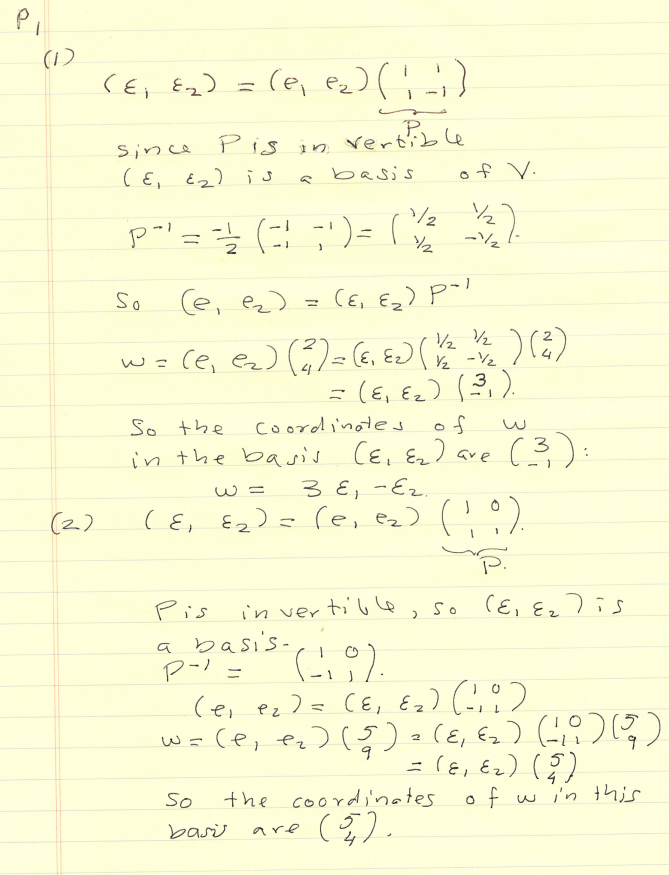 P1
(1)
(ε1 ε2) = (e1 e2) (1 1; 1 -1)
P
since P is invertible
(ε1 ε2) is a basis of V.
P⁻¹ = -1/2 (-1 -1; -1 1) = (1/2 1/2; 1/2 -1/2).
So (e1 e2) = (ε1 ε2) P⁻¹
w = (e1 e2) (2; 4) = (ε1 ε2) (1/2 1/2; 1/2 -1/2) (2; 4)
= (ε1 ε2) (3; -1).
So the coordinates of w
in the basis (ε1 ε2) are (3; -1):
w = 3 ε1 - ε2.
(2) (ε1 ε2) = (e1 e2) (1 0; 1 1).
P.
P is invertible, so (ε1 ε2) is
a basis.
P⁻¹ = (1 0; -1 1).
(e1 e2) = (ε1 ε2) (1 0; -1 1)
w = (e1 e2) (5; 9) = (ε1 ε2) (1 0; -1 1) (5; 9)
= (ε1 ε2) (5; 4)
So the coordinates of w in this
basis are (5; 4).